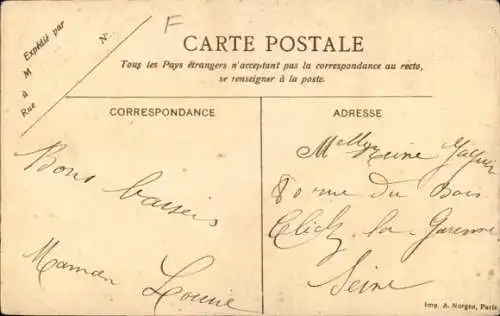 Expédié par
M
à
Rue
N°
F
CARTE POSTALE
Tous les Pays étrangers n'acceptant pas la correspondance au recto,
se renseigner à la poste.
CORRESPONDANCE
Bons baisers
Maman Louise
ADRESSE
Mlle Reine
8 rue du Bois
Clichy la Garenne
Seine
Imp. A. Norgeu, Paris